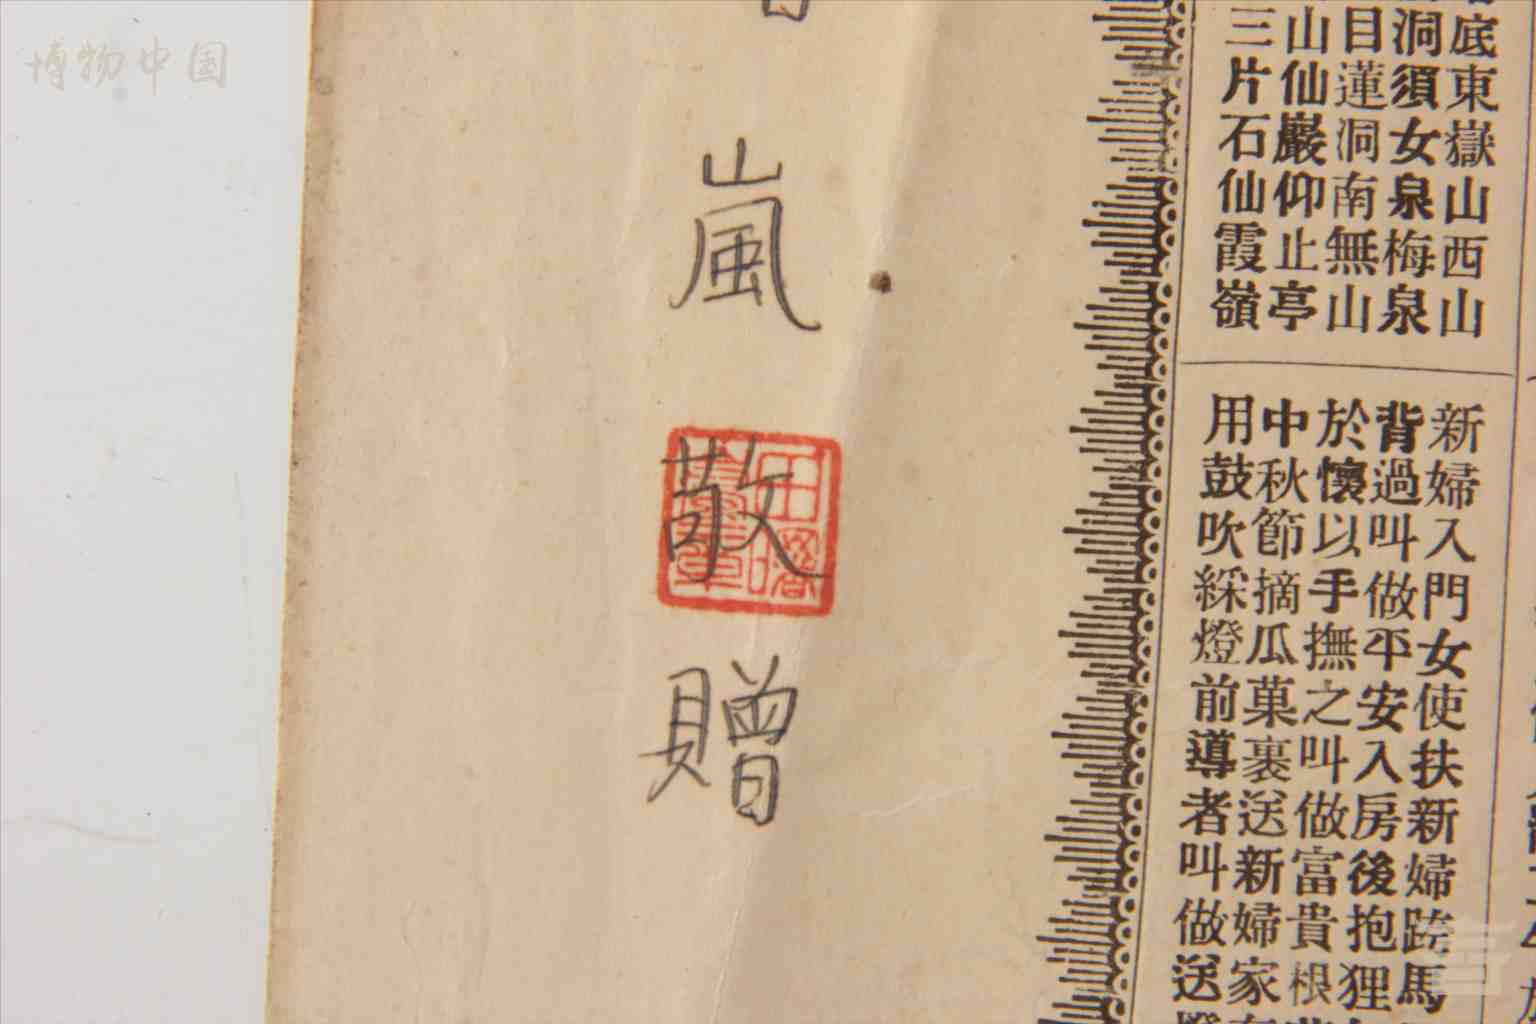 博物中国
底東嶽山西山
洞須女泉梅泉
目蓮洞南無山
山仙巖仰止亭
三片石仙霞嶺
新婦入門女使扶新婦跨馬
背過叫做平安入房後抱狸
於懷以手撫之叫做富貴根
中秋節摘瓜菓裹送新婦家
用鼓吹綵燈前導者叫做送
嵐敬贈